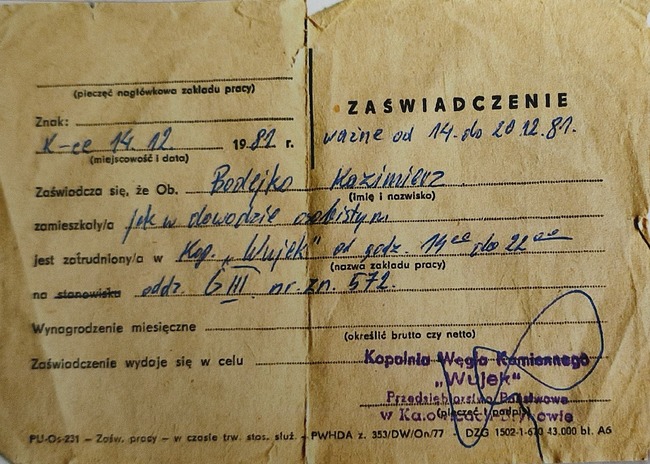 (pieczęć nagłówkowa zakładu pracy)
ZAŚWIADCZENIE
Znak:
ważne od 14. do 20 12.81.
K-ce 14.12. 1981. r.
(miejscowość i data)
Zaświadcza się, że Ob. Bodejko Kazimierz
(imię i nazwisko)
zamieszkały/a jak w dowodzie osobistym
jest zatrudniony/a w Kop. „Wujek" od godz. 14 do 22
(nazwa zakładu pracy)
na stanowisku oddz. G III. nr. zn. 572.
Wynagrodzenie miesięczne
(określić brutto czy netto)
Zaświadczenie wydaje się w celu
Kopalnia Węgla Kamiennego
„Wujek"
Przedsiębiorstwo Państwowe
w Katowicach-Brynowie
(pieczęć i podpis)
PU-Os-231 – Zaśw. pracy – w czasie trw. stos. służ. – PWHDA z. 353/DW/On/77 DZG 1502-1-670 43.000 bl. A6